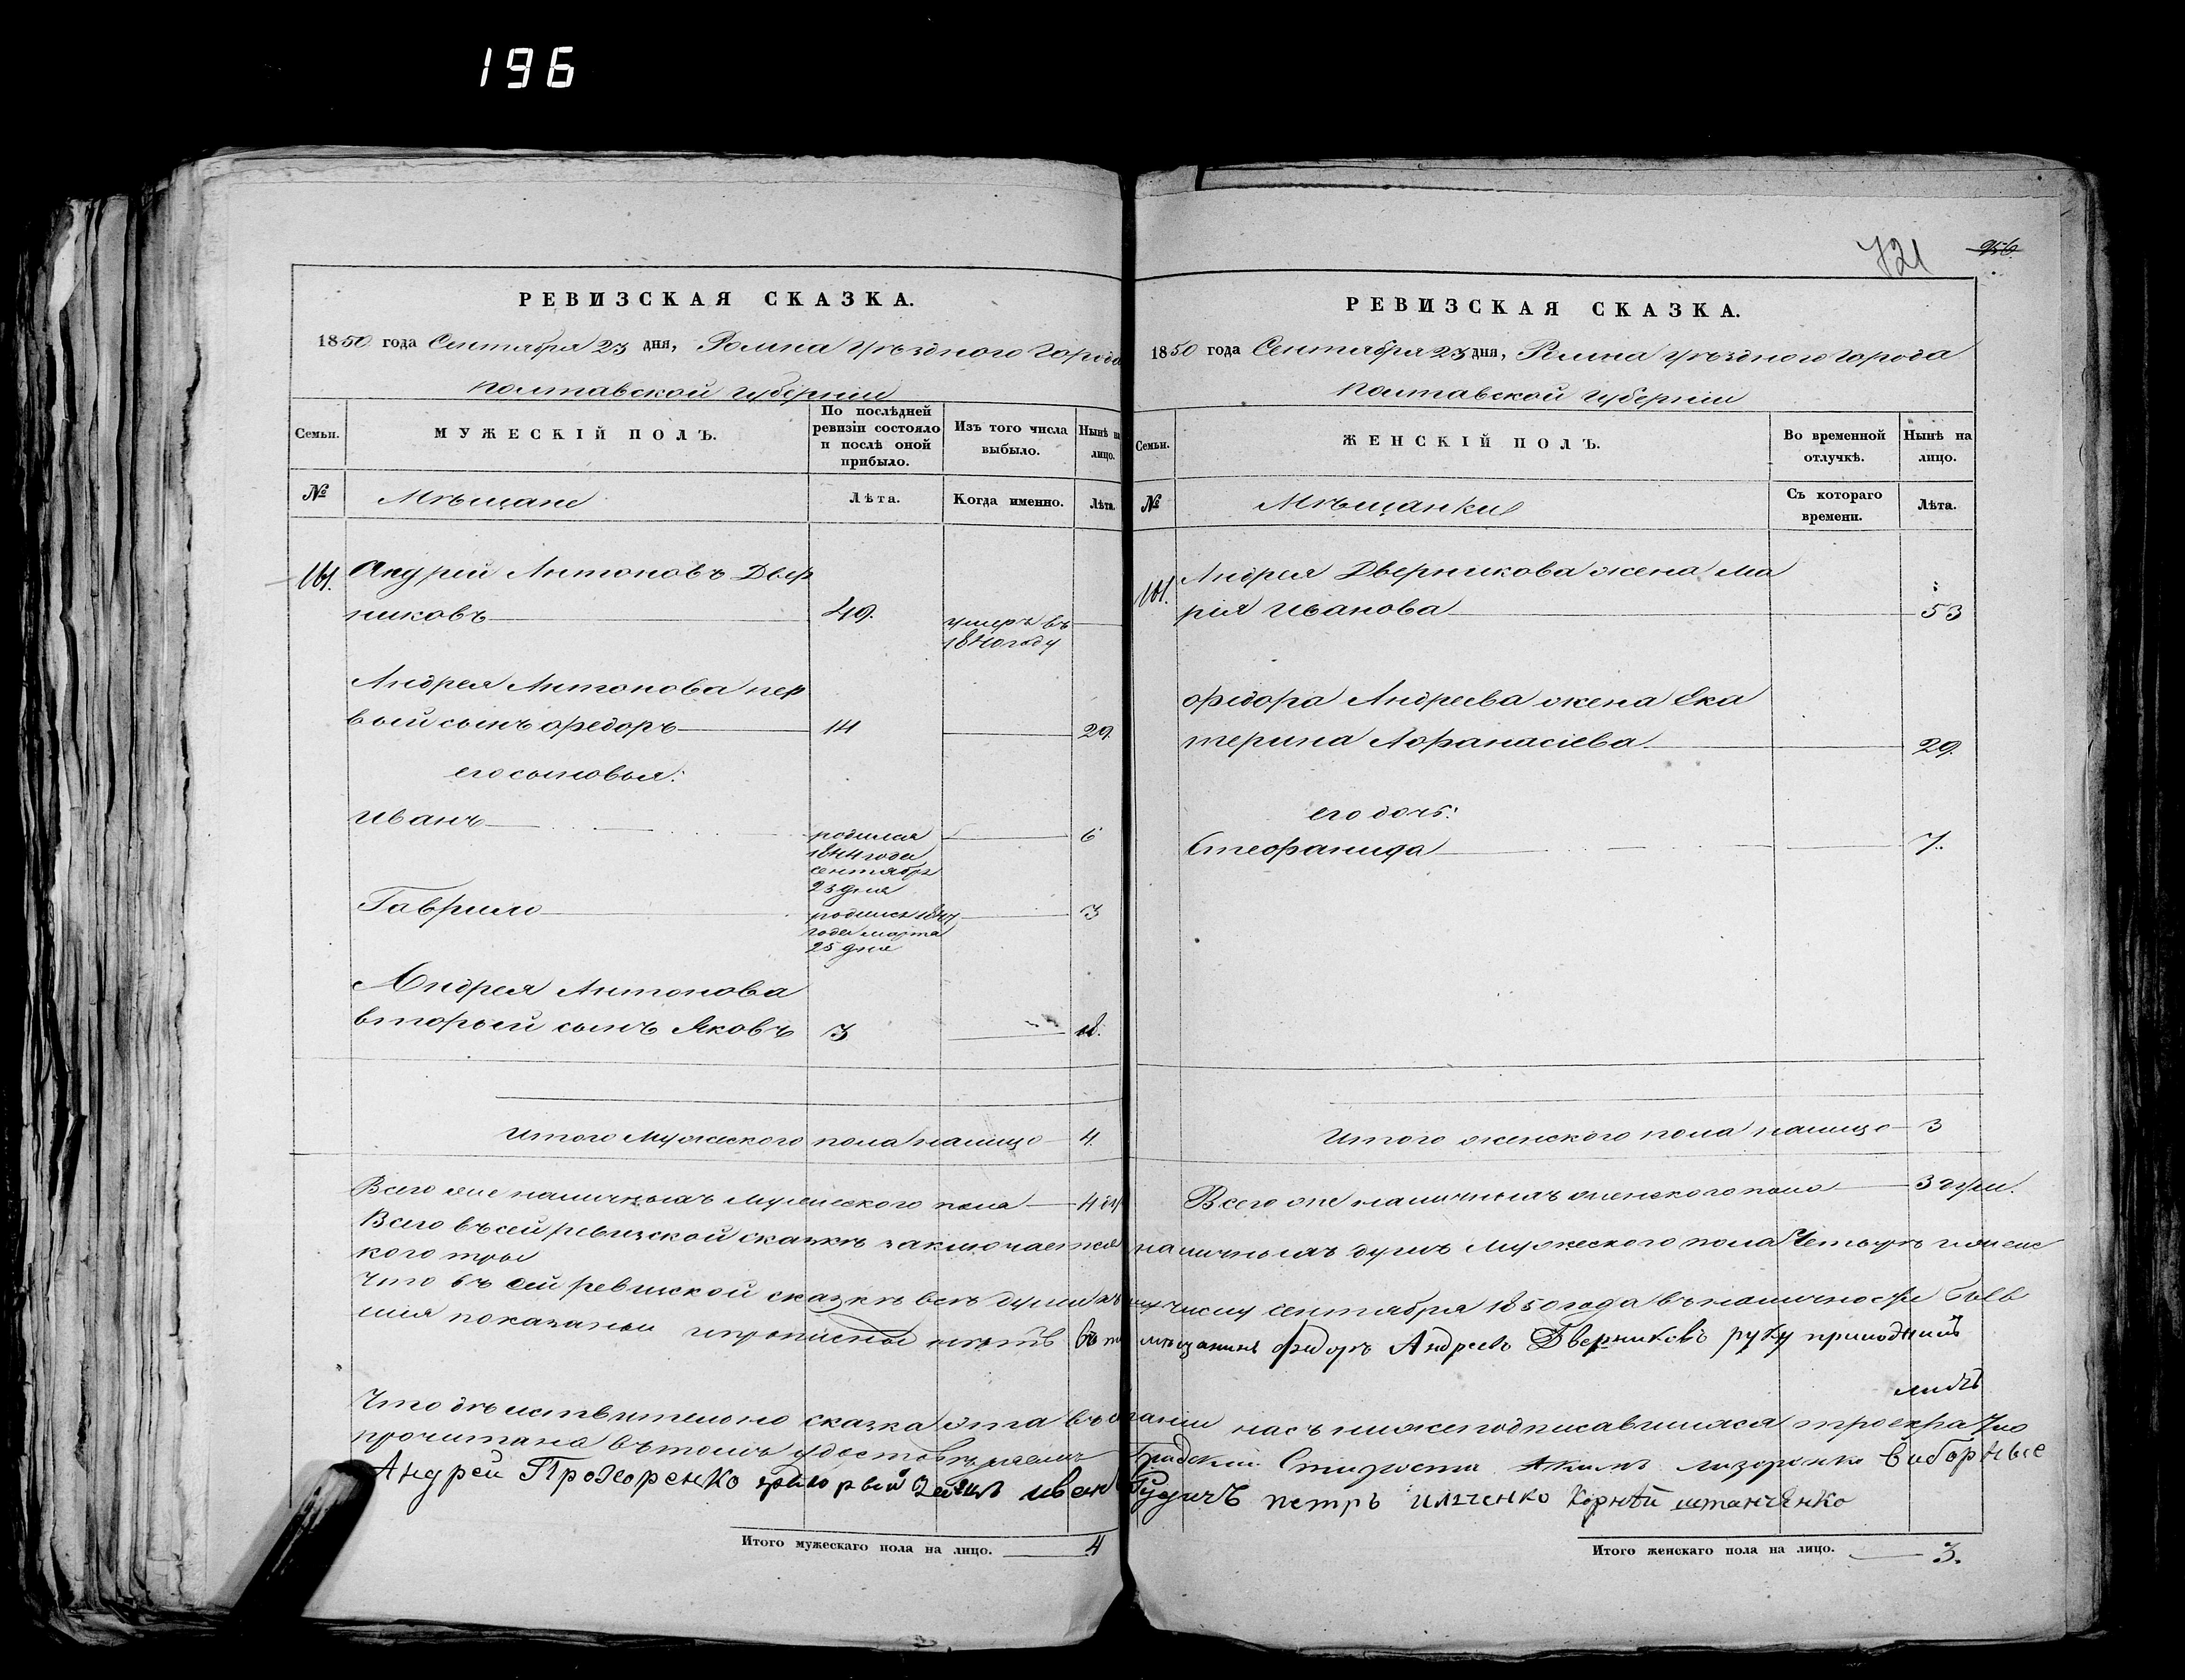 196
721
956
РЕВИЗСКАЯ СКАЗКА.
1850 года Сентября 23 дня, Ромна Уѣзднаго Города
Полтавской Губерніи
Семьи.
МУЖЕСКІЙ ПОЛЪ.
По послѣдней ревизіи состояло и послѣ оной прибыло.
Изъ того числа выбыло.
Нынѣ на лицо.
№
Мѣщане
Лѣта.
Когда именно.
Лѣта.
161. Андрей Антоновъ Двер
никовъ 49. умеръ въ
1840 году
Андрея Антонова пер
вый сынъ Федоръ 14 29.
его сыновья:
Иванъ родился 6
1844 года
сентября
23 дня
Гаврило родился 1847 3
года марта
25 дня
Андрея Антонова
второй сынъ Яковъ 3 18.
Итого Мужеского пола налицо 4.
Всего же наличныхъ мужеского пола 4
РЕВИЗСКАЯ СКАЗКА.
1850 года Сентября 23 дня, Ромна Уѣзднаго Города
Полтавской Губерніи
Семьи.
ЖЕНСКІЙ ПОЛЪ.
Во временной отлучкѣ.
Нынѣ на лицо.
№
Мѣщанки
Съ котораго времени.
Лѣта.
161. Андрея Дверникова жена Ма
рія Иванова 53
Федора Андреева жена Ека
терина Афанасіева 29.
его дочь:
Стефанида 7.
Итого женского пола налицо 3
Всего же наличныхъ женского пола 3 души.
Всего въ сей ревизской сказкѣ заключается наличныхъ душъ мужеского пола Четыре и женс
кого три
Что въ сей ревизской сказкѣ всѣ души къ числу сентября 1850 года въ наличности бывв
шія показаны и прописныхъ нѣтъ въ томъ мѣщанинъ Федоръ Андреевъ Дверниковъ руку приложилъ
Что дѣйствительно сказка эта въ собраніи насъ нижеподписавшихся троекратно
прочитана въ томъ удостовѣряемъ Градскій Староста Акимъ Лазоренко Виборные
Андрей Прохоренко Иванъ Рудичъ Петръ Ильченко Корнѣй
Итого мужескаго пола на лицо. 4
Итого женскаго пола на лицо. 3.